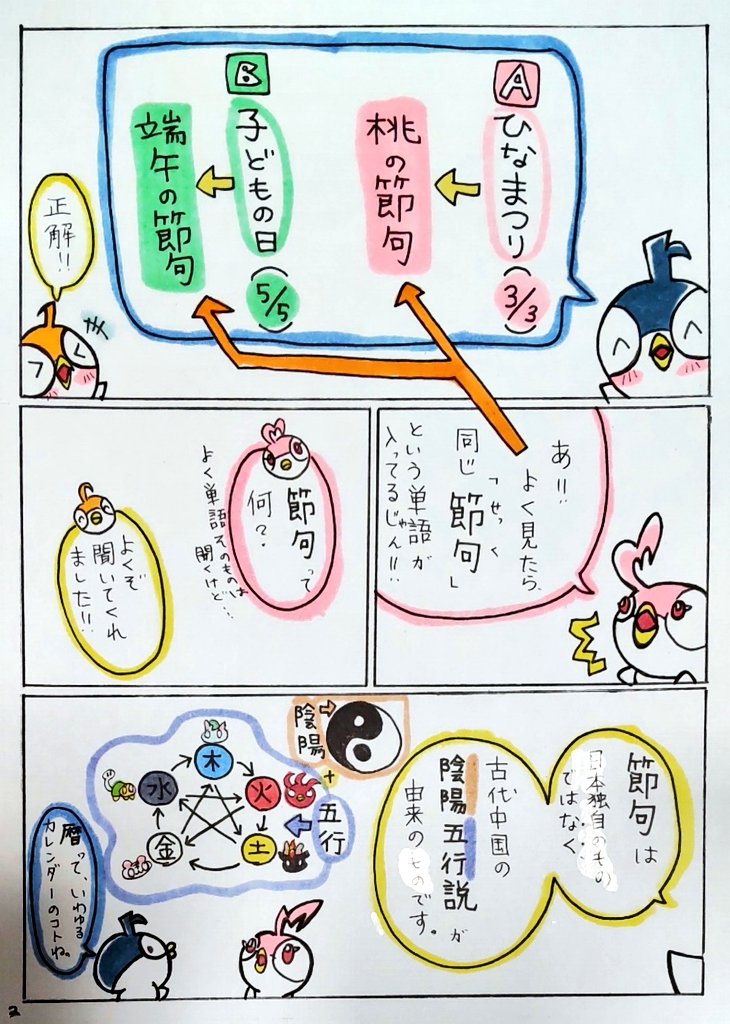 A
ひなまつり
(3/3)
桃の節句
B
子どもの日
(5/5)
端午の節句
正解!!
あ!!
よく見たら、
同じ「節句」
せっく
という単語が
入ってるじゃん!!
節句って
何?
よく単語そのものは
聞くけど…
よくぞ
聞いてくれ
ました!!
節句は
日本独自のもの
ではなく
古代中国の
陰陽五行説が
由来のものです。
陰陽
+
五行
木
火
土
金
水
暦って、いわゆる
カレンダーのコトね。
2